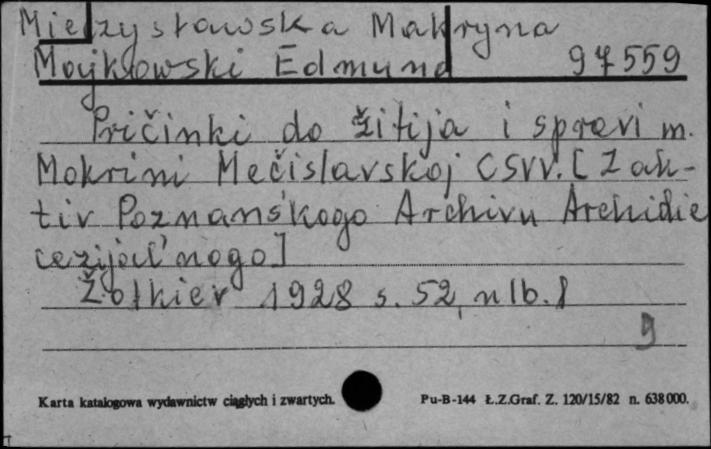 Mieczysławska Makryna
Moykowski Edmund 97559
Pričinki do žitija i spravi m.
Mokrini Mečislavskoj CSVV. [Z ak-
tiv Poznans'kogo Archivu Archidie
cezijal'nogo]
Žolkiev 1928 s. 52, nlb. 1
9
Karta katalogowa wydawnictw ciągłych i zwartych. Pu-B-144 Ł.Z.Graf. Z. 120/15/82 n. 638000.